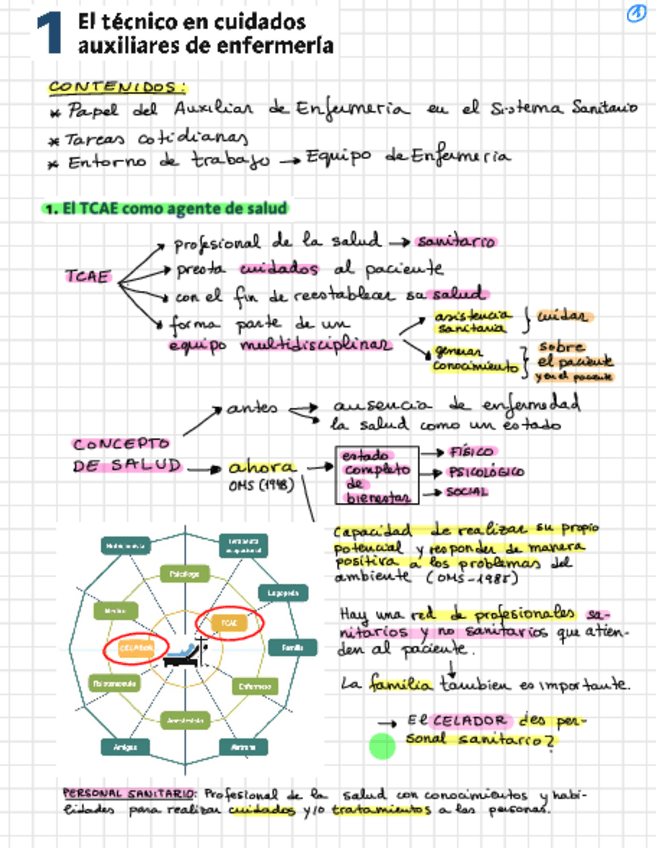 1
1 El técnico en cuidados
auxiliares de enfermería
CONTENIDOS:
* Papel del Auxiliar de Enfermería en el Sistema Sanitario
* Tareas cotidianas
* Entorno de trabajo → Equipo de Enfermería
1. El TCAE como agente de salud
TCAE
profesional de la salud → sanitario
presta cuidados al paciente
con el fin de reestablecer su salud
forma parte de un
equipo multidisciplinar
asistencia
sanitaria } cuidar
generar
conocimiento }
sobre
el paciente
y en el paciente
CONCEPTO
DE SALUD
antes
ausencia de enfermedad
la salud como un estado
→ ahora →
OMS (1948)
estado
completo
de
bienestar
→ FÍSICO
→ PSICOLÓGICO
→ SOCIAL
Nutricionista
Terapeuta
ocupacional
Psicólogo
Logopeda
Médico
TCAE
CELADOR
Familia
Fisioterapeuta
Enfermero
Anestesista
Amigos
Matrona
Capacidad de realizar su propio
potencial y responder de manera
positiva a los problemas del
ambiente (OMS-1985)
Hay una red de profesionales sa-
nitarios y no sanitarios que atien-
den al paciente.
La familia tambien es importante.
→ El CELADOR ¿es per-
sonal sanitario?
PERSONAL SANITARIO: Profesional de la salud con conocimientos y habi-
lidades para realizar cuidados y/o tratamientos a las personas.